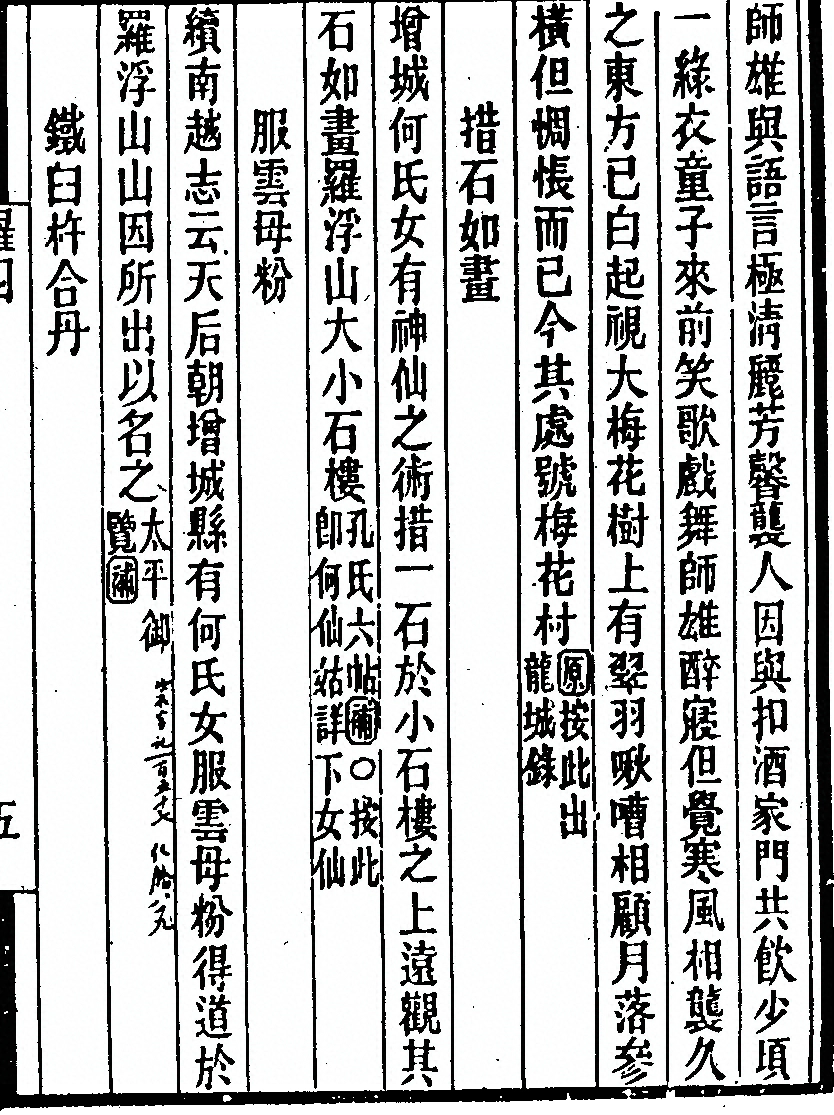 師雄與語言極清麗芳馨襲人因與扣酒家門共飲少頃
一綠衣童子來前笑歌戲舞師雄醉寢但覺寒風相襲久
之東方已白起視大梅花樹上有翠羽啾嘈相顧月落參
橫但惆悵而已今其處號梅花村原按此出龍城錄
措石如畫
增城何氏女有神仙之術措一石於小石樓之上遠觀其
石如畫羅浮山大小石樓孔氏六帖補○按此即何仙姑詳下女仙
服雲母粉
續南越志云天后朝增城縣有何氏女服雲母粉得道於
羅浮山山因所出以名之太平御覽補
鐵臼杵合丹
五